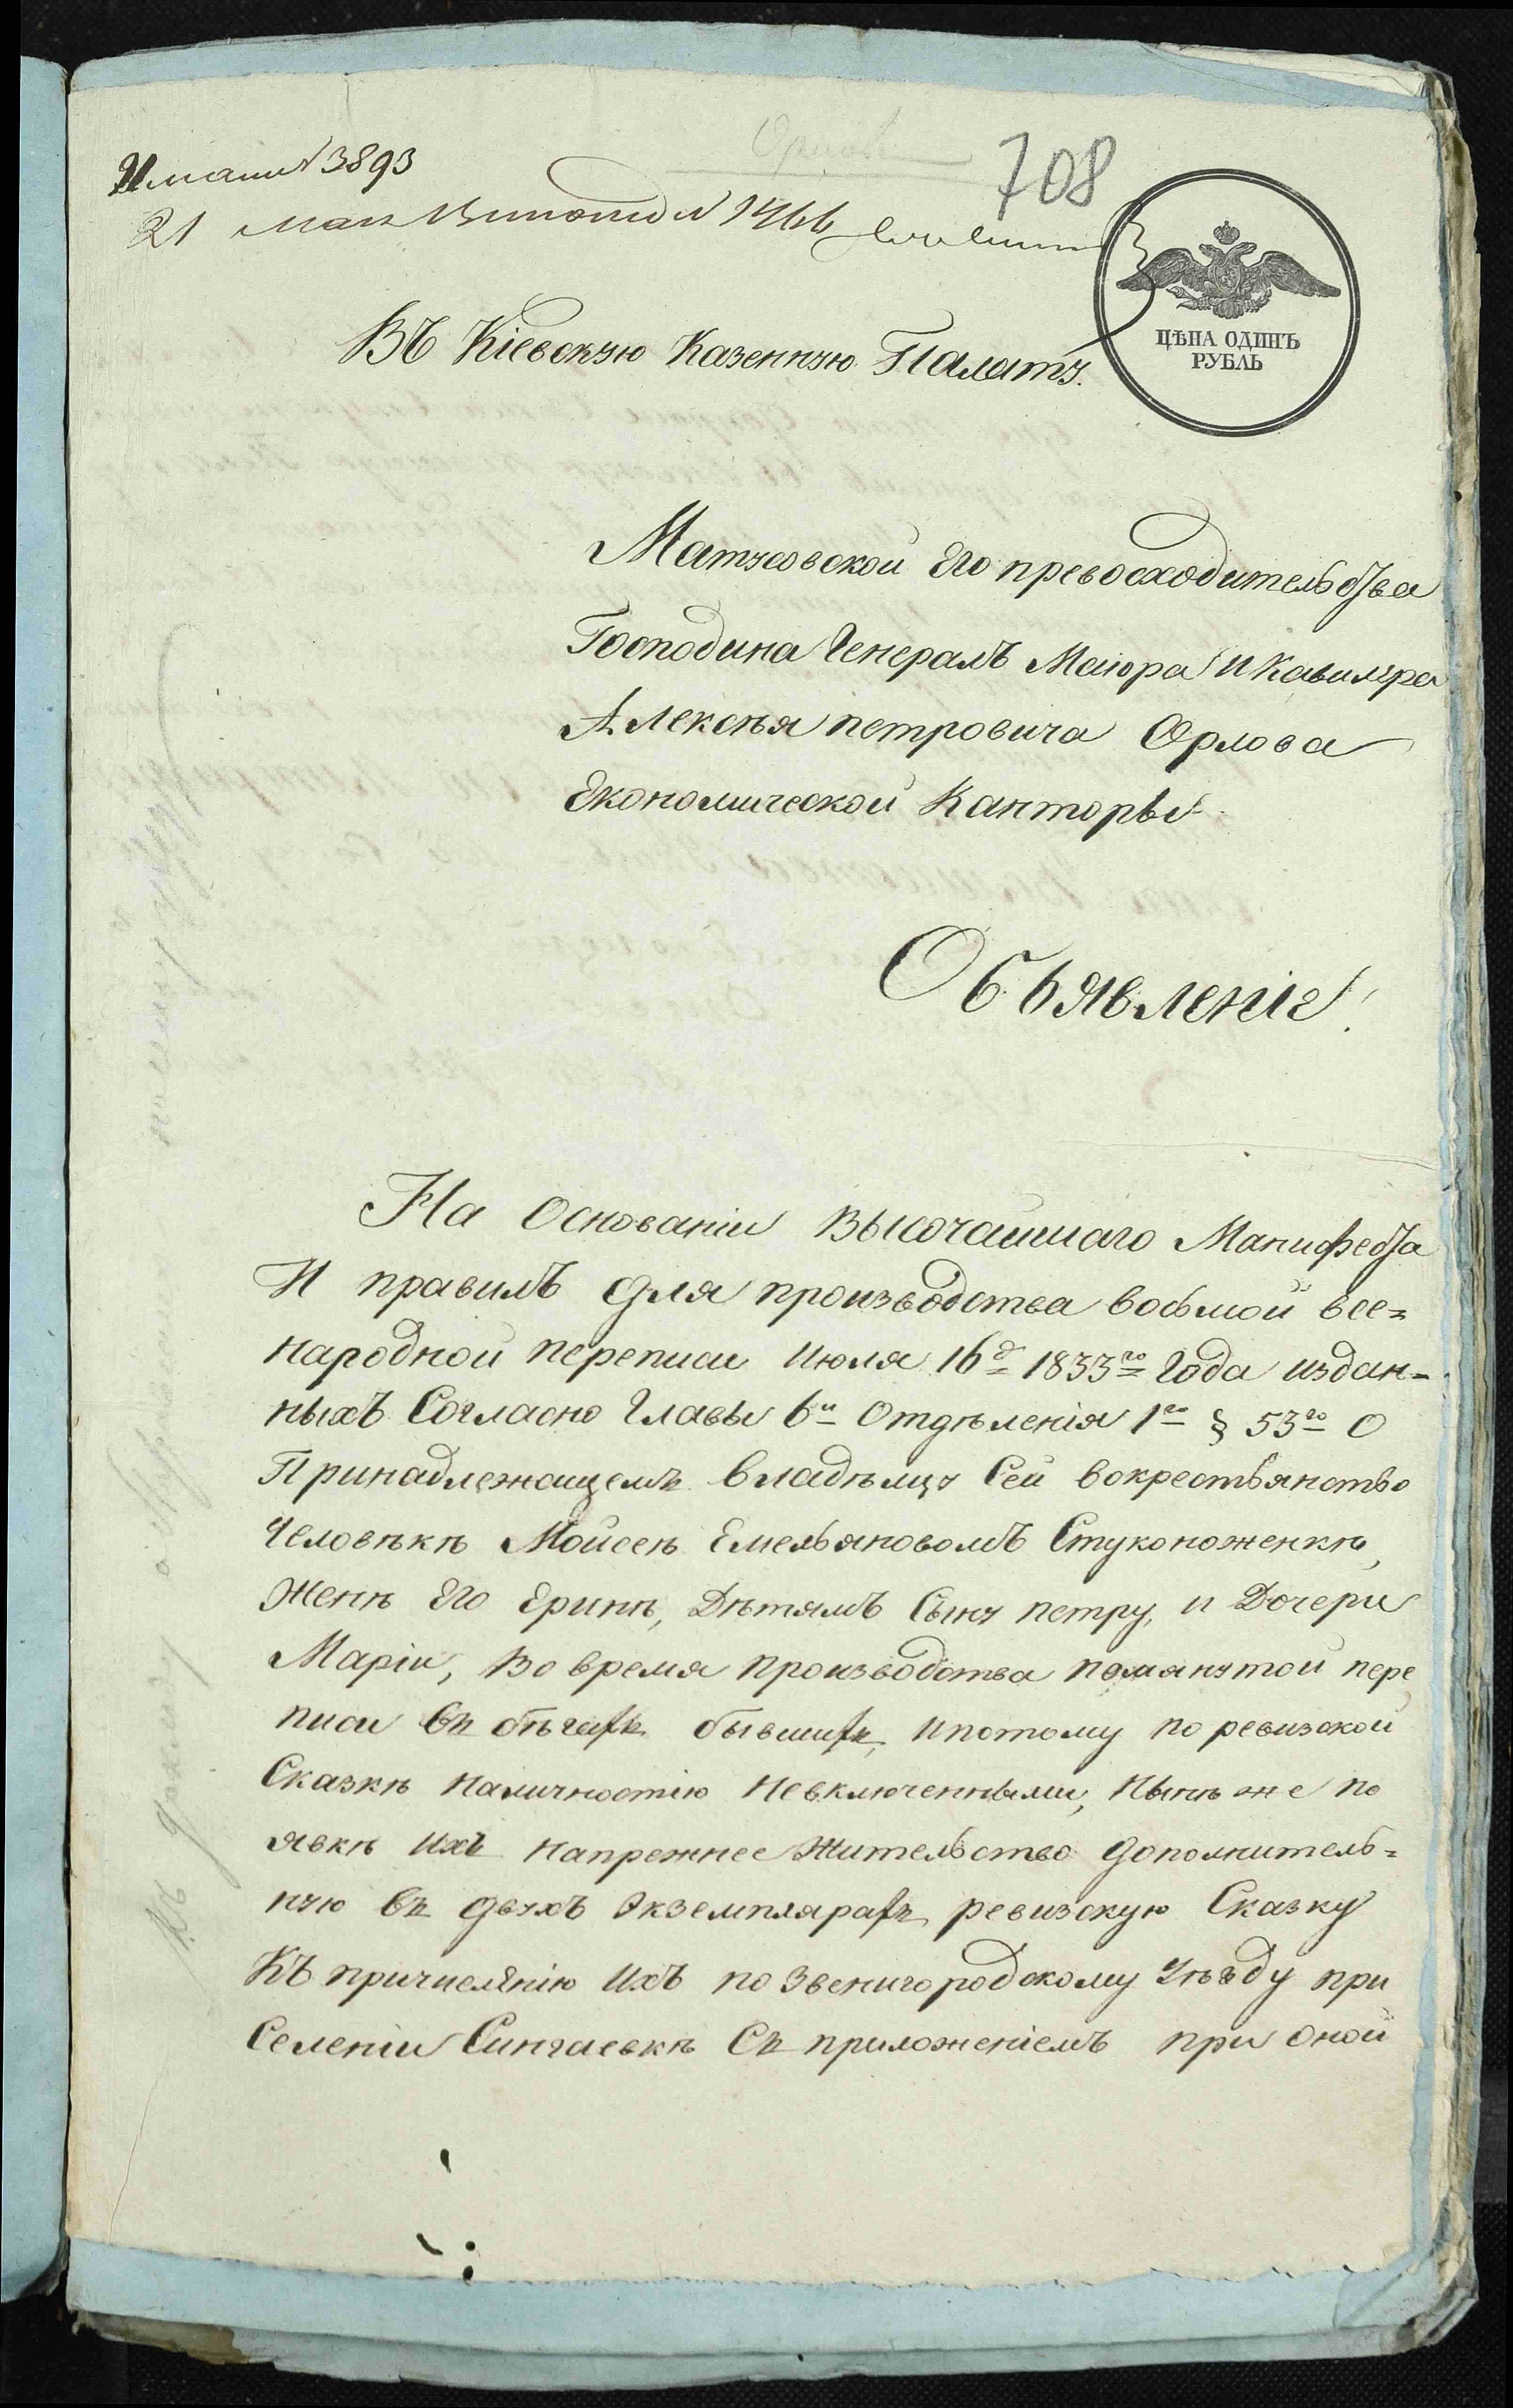 Орлова
708
№ 3893
21 мая № 1466
ЦѢНА ОДИНЪ
РУБЛЬ
Въ Кіевскую Казенную Палату.
Матусовской Его превосходительства
Господина Генералъ Маіора и Кавалера
Алексѣя петровича Орлова
Економической Канторы
Объявленіе!
На Основаніи Высочайшаго Манифеста
И правилъ для производства восьмой все=
народной переписи Июля 16д 1833го Года издан=
ныхъ Согласно Главы 6й Отдѣленія 1го § 53го О
Принадлежащемъ владѣльцу Сей вокрестьянство
Человѣкѣ Мойсеѣ Емельяновомъ Стуконоженкѣ,
Женѣ Его Еринѣ, Дѣтямъ Сыну петру, и Дочери
Маріи, Во время производства помянутой пере
писи въ бѣгахъ бывшихъ, ипотому по ревизской
Сказкѣ наличностію невключенными, Нынѣ же по
явкѣ Ихъ напрежнее Жительство дополнитель=
ную въ двухъ Экземплярахъ ревизскую Сказку
Къ причисленію Ихъ по Звенигородскому Уѣзду при
Селеніи Сингаевкѣ Съ приложеніемъ при оной